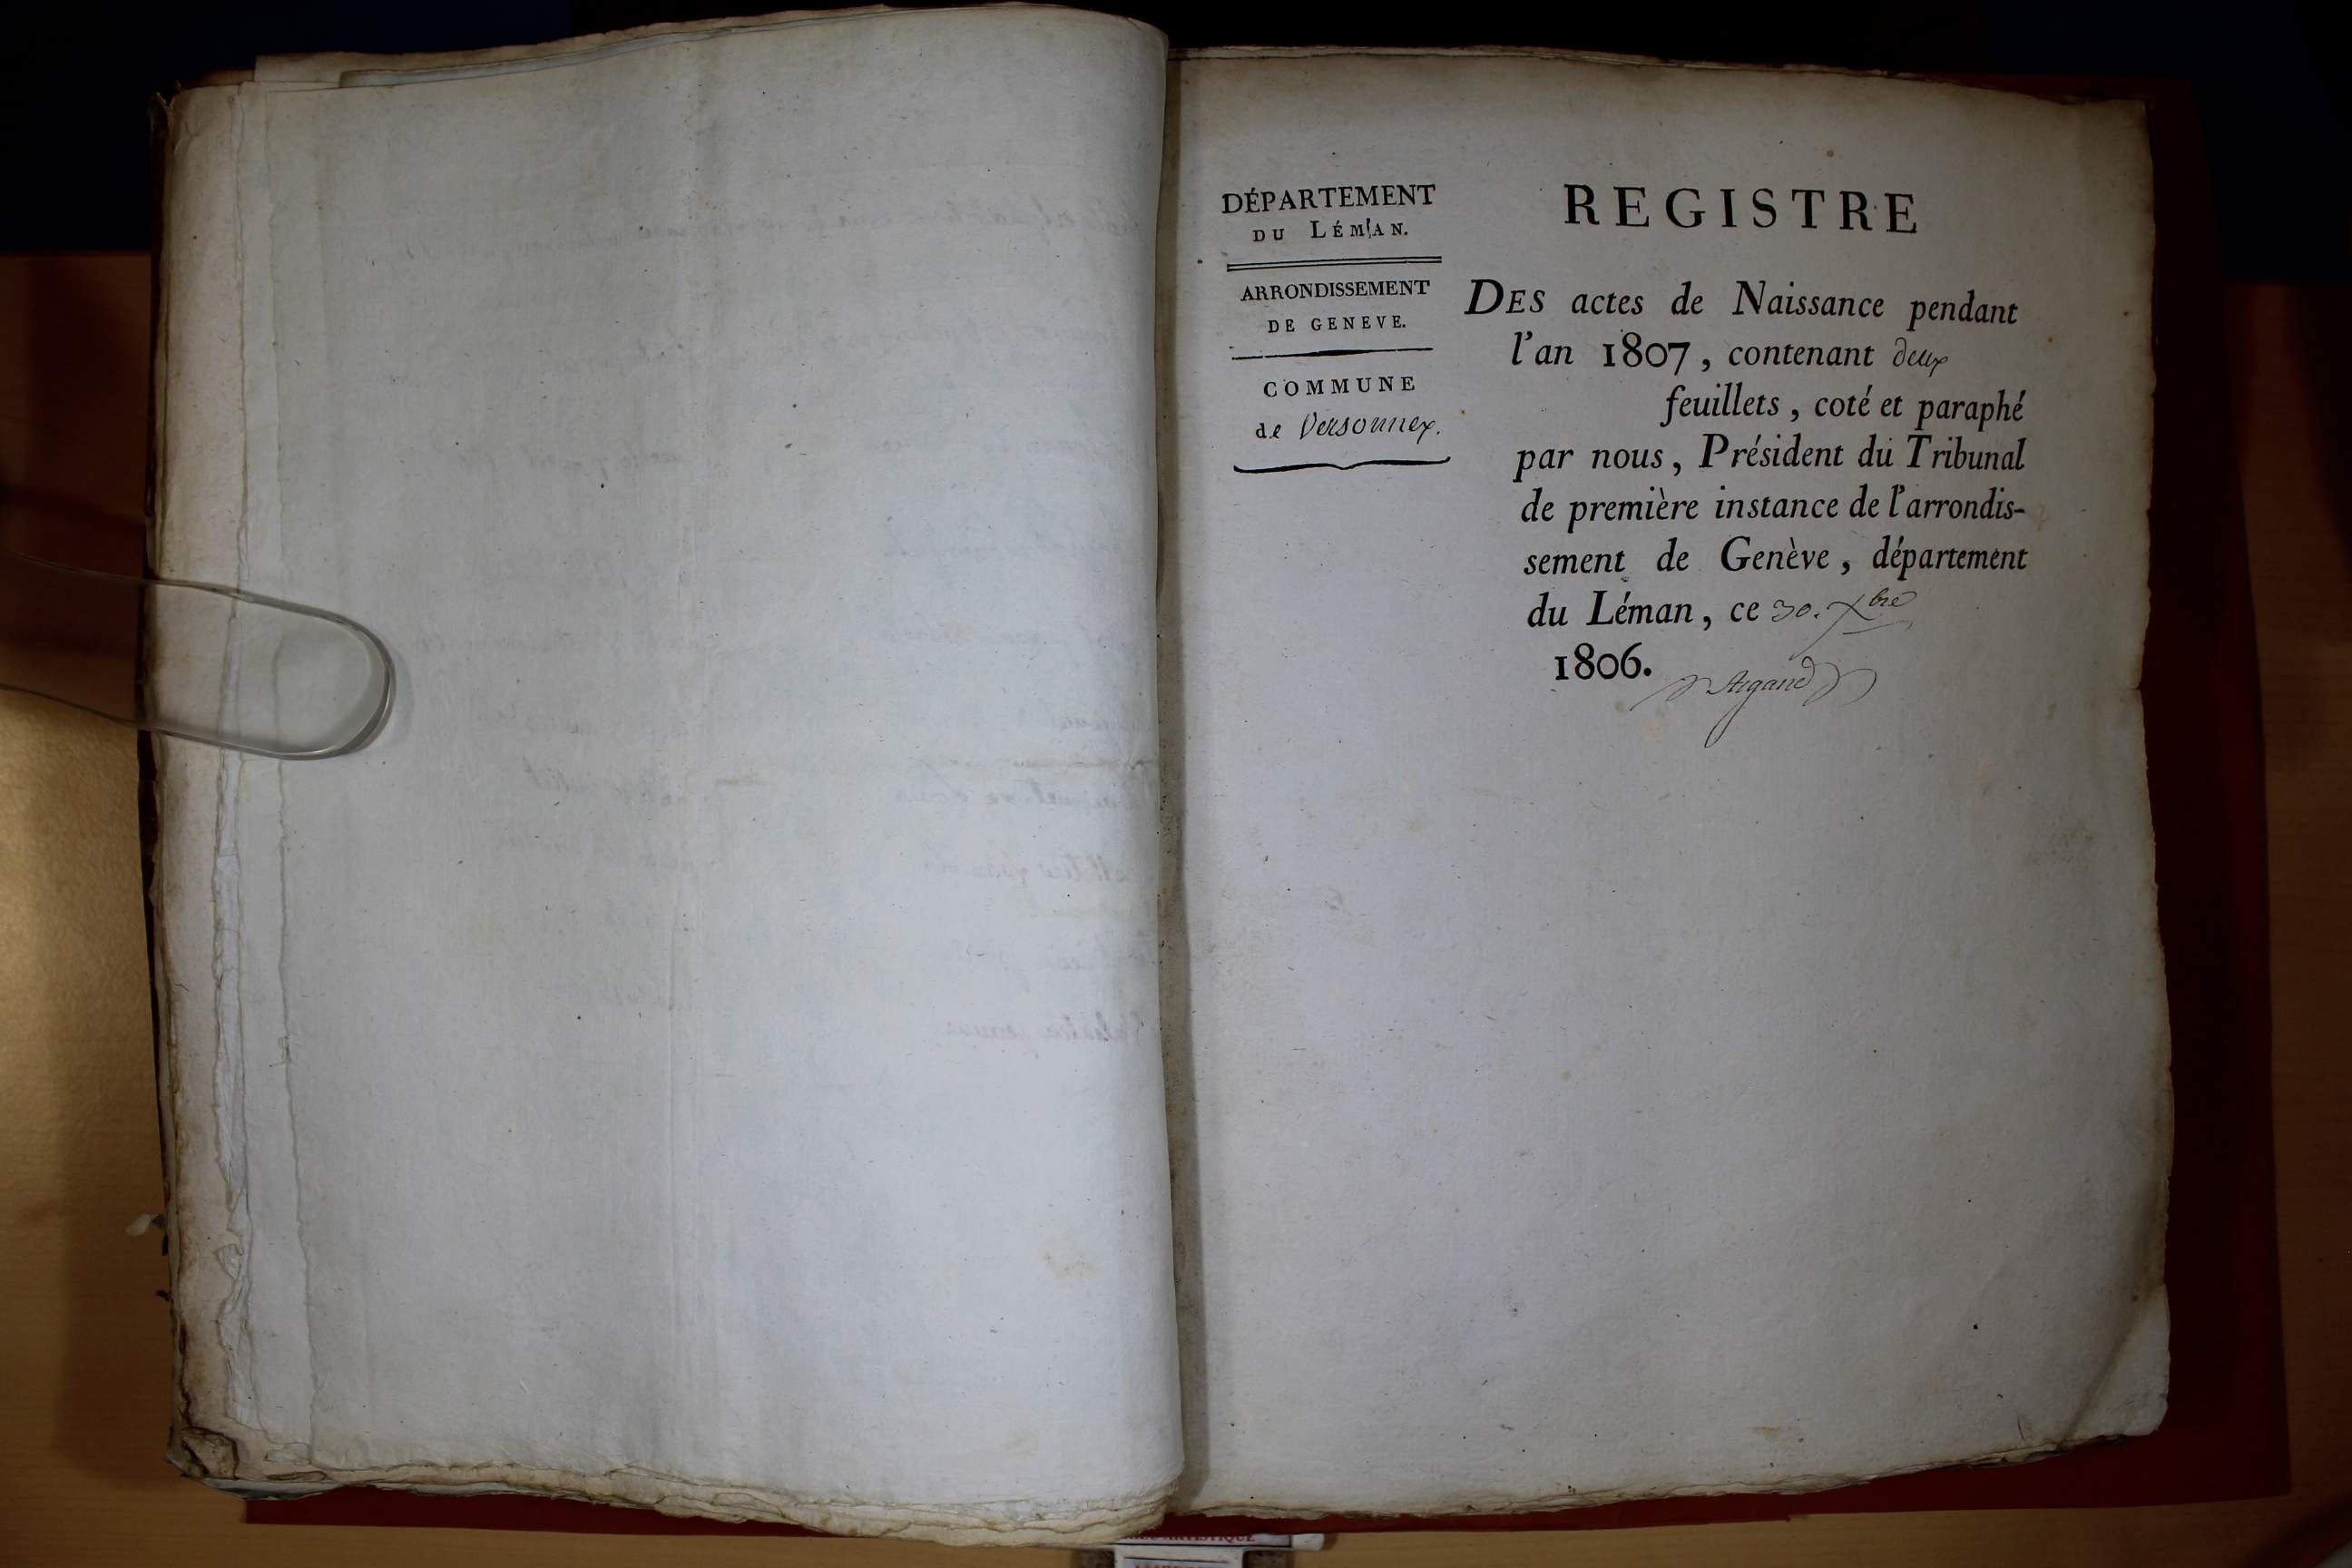 DÉPARTEMENT
DU LÉMAN.
ARRONDISSEMENT
DE GENEVE.
COMMUNE
de Versonnex.
REGISTRE
DES actes de Naissance pendant
l'an 1807, contenant deux
feuillets, coté et paraphé
par nous, Président du Tribunal
de première instance de l'arrondis-
sement de Genève, département
du Léman, ce 30. Xbre
1806.
Argand